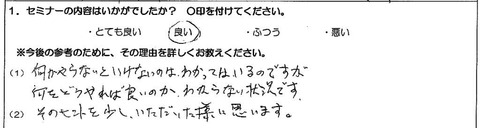 1．セミナーの内容はいかがでしたか？ 〇印を付けてください。
・とても良い ・良い ・ふつう ・悪い
※今後の参考のために、その理由を詳しくお教えください。
(1) 何かやらないといけないのは、わかってはいるのですが
何をどうやれば良いのか、わからない状況です。
(2) そのヒントを少し、いただいた様に思います。